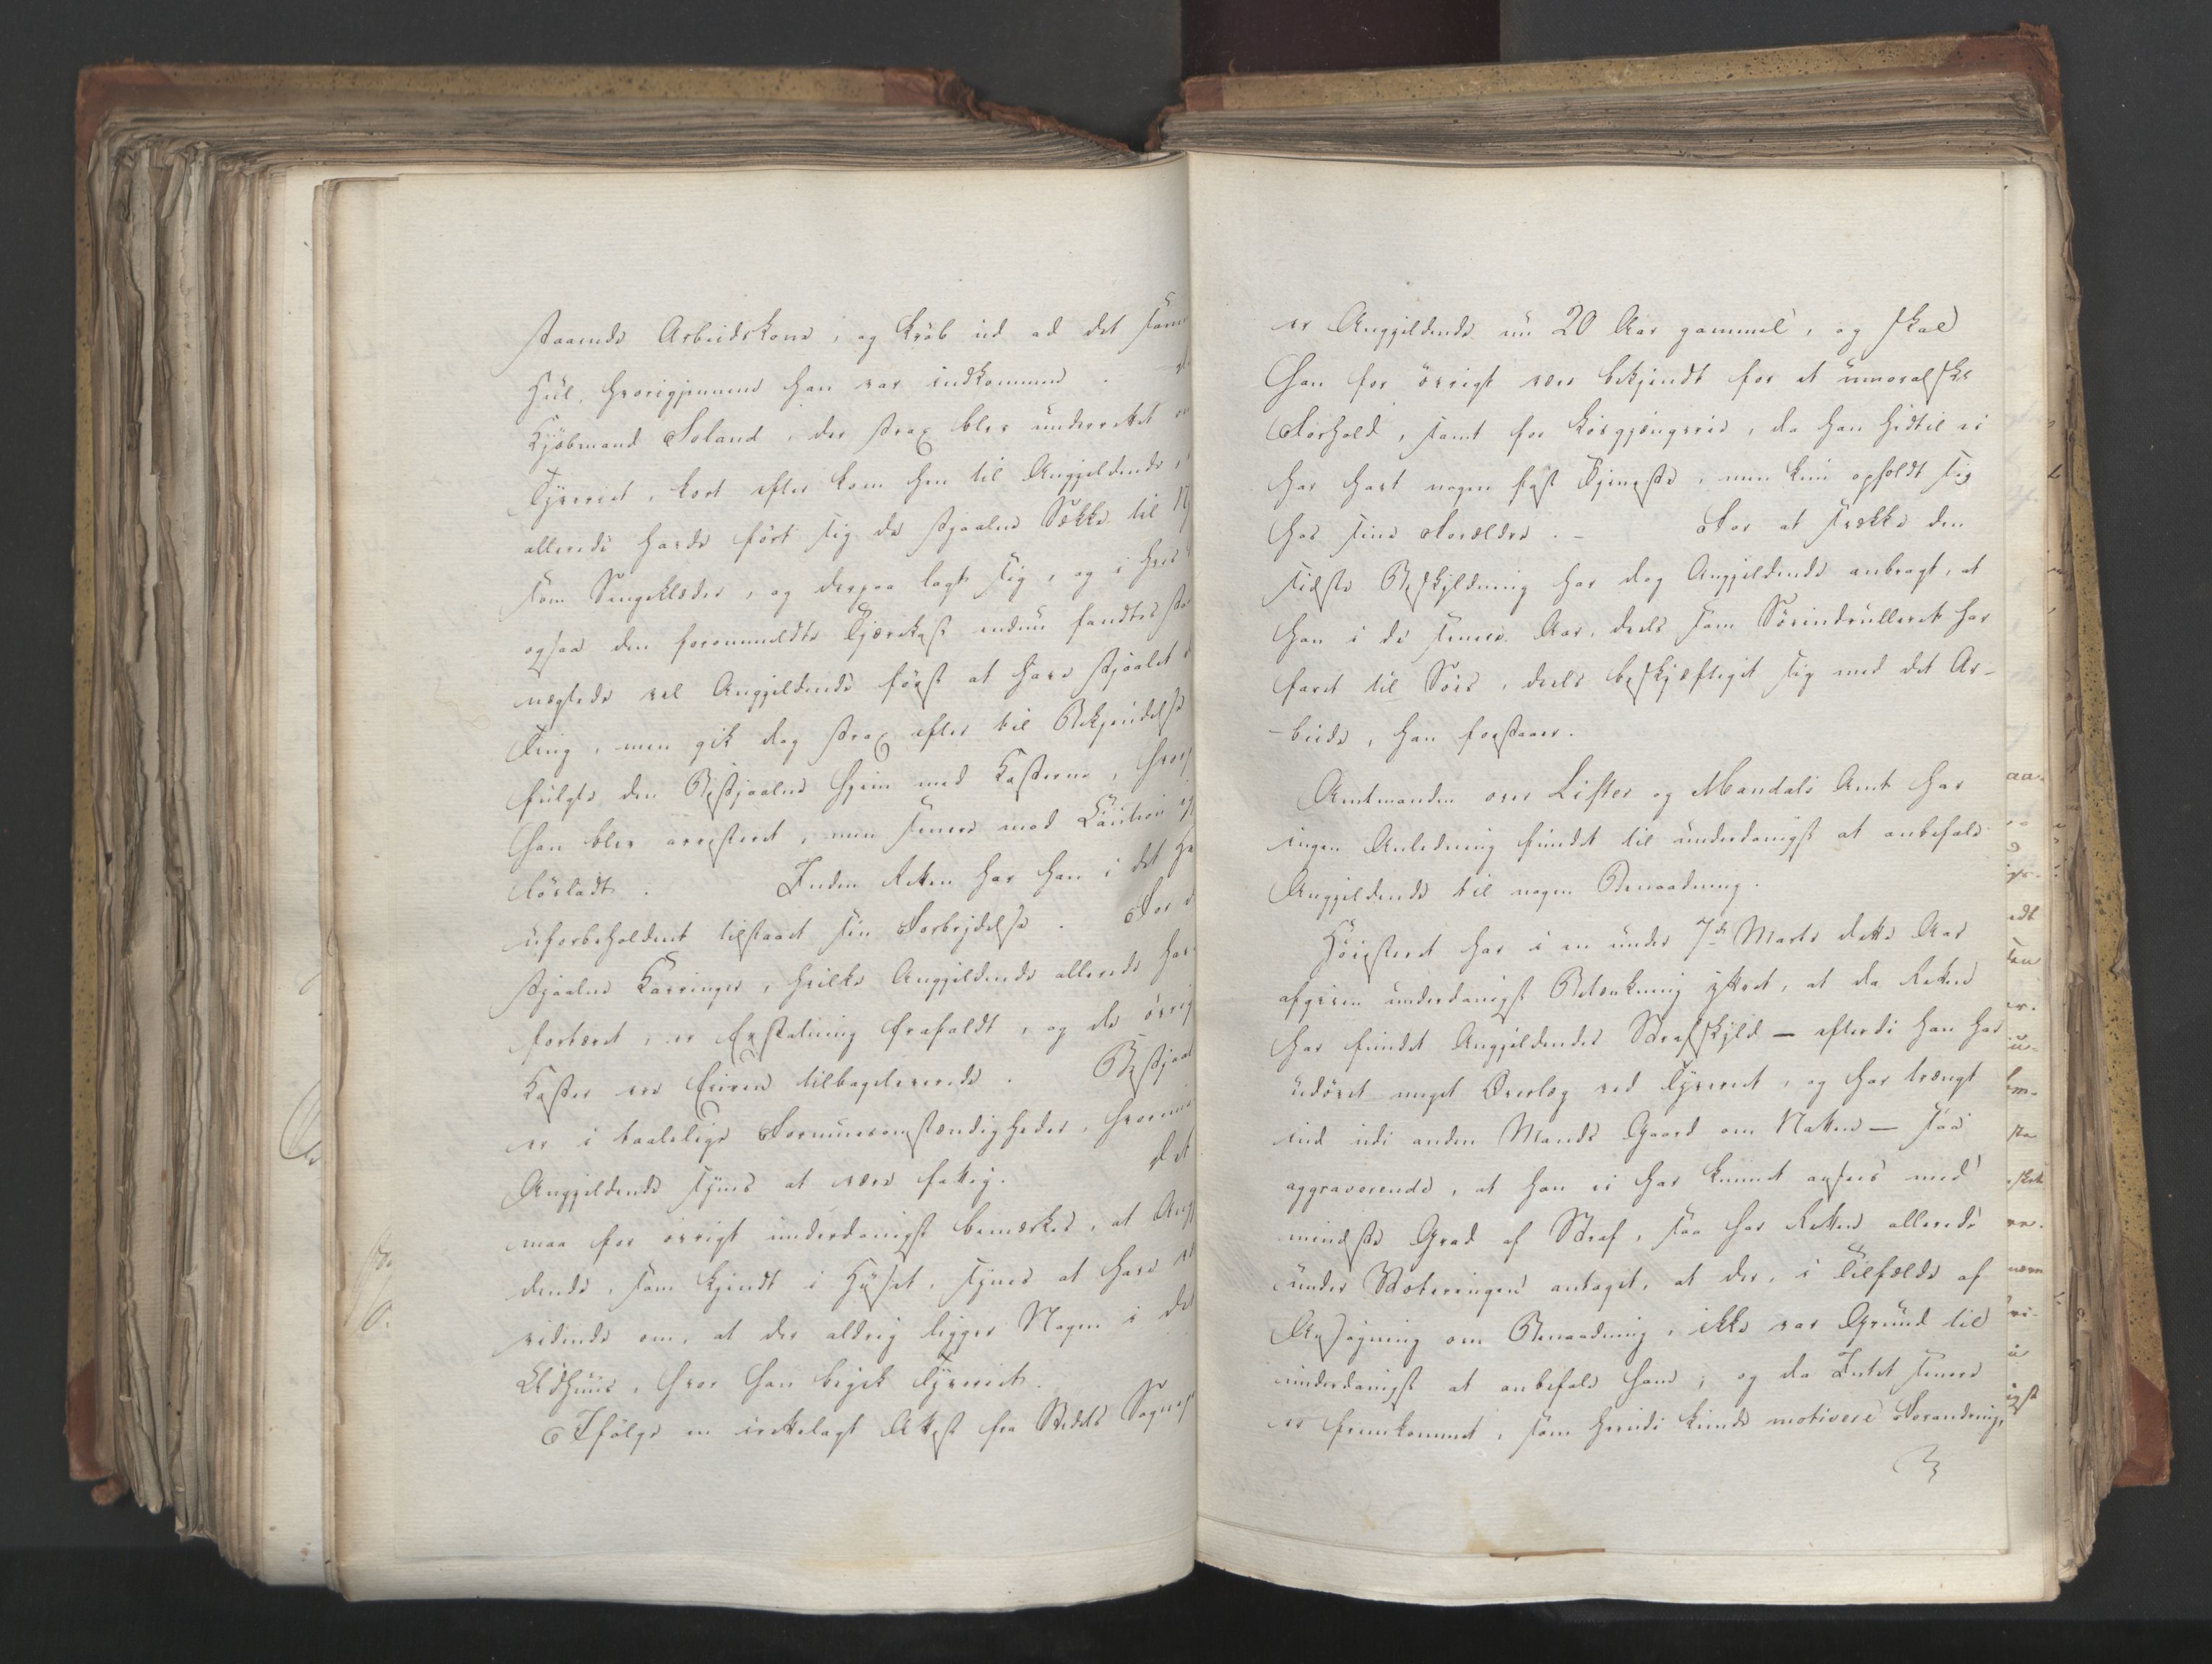 staaende Arbeidskone, og krøb ud ad det samme
Hul, hvorigjennem han var indkommen.
Kjøbmand Soland, der strax blev underrettet om
Tyveriet, kort efter kom hen til Angjeldende,
allerede havde ført sig de stjaalne Sække til
som Sengeklæder, og derpaa lagt sig, og i hvis
ogsaa den forommeldte Tjærekost endnu fandtes
negtede vel Angjeldende først at have stjaalet
Ting, men gik dog strax efter til Bekjendelse
fulgte den Bestjaalne hjem med Kosterne, hvor
han blev arresteret, men senere mod Caution
løsladt. Inden Retten har han i det
uforbeholdent tilstaaet sin Forbrydelse. For
stjaalne Kavringer, hvilke Angjeldende allerede
fortæret, er Erstatning frafaldt, og de øvrige
Koster ere Eieren tilbageleverede. Bestjaal
er i taalelige Formuesomstændigheder, hvorimod
Angjeldende synes at være fattig. Det
maa for øvrigt underdanigst bemærkes, at Angjel
dende, som kjendt i Huset, synes at have
vidende om, at der aldrig ligger Nogen i det
Udhuus, hvor han begik Tyveriet.
Ifølge en irettelagt Attest fra Stedets Sogne
er Angjeldende nu 20 Aar gammel, og skal
han for øvrigt være bekjendt for et umoralske
Forhold, samt for Løsgjængerie, da han hidtil ei
har havt nogen fast Tjeneste, men kun opholdt sig
hos sine Forældre. – For at svække den
sidste Beskyldning har dog Angjeldende anbragt, at
han i de senere Aar, deels som Søeindrulleret har
faret til Søes, deels beskjæftiget sig med det Ar-
-beide, han forstaaer.
Amtmanden over Lister og Mandals Amt har
ingen Anledning fundet til underdanigst at anbefale
Angjeldende til nogen Benaadning.
Høiesteret har i en under 7de Marts dette Aar
afgiven underdanigst Betænkning yttret, at da Retten
har fundet Angjeldendes Strafskyld – efterdi han har
udøvet meget Overlæg ved Tyveriet, og har trængt
ind udi anden Mands Gaard om Natten – saa
aggraverende, at han ei har kunnet ansees med
mindste Grad af Straf, saa har Retten allerede
under Voteringen antaget, at der, i Tilfælde af
Ansøgning om Benaadning, ikke var Grund til
underdanigst at anbefale ham; og da Intet senere
er fremkommet, som heri kunde motivere Forandring,